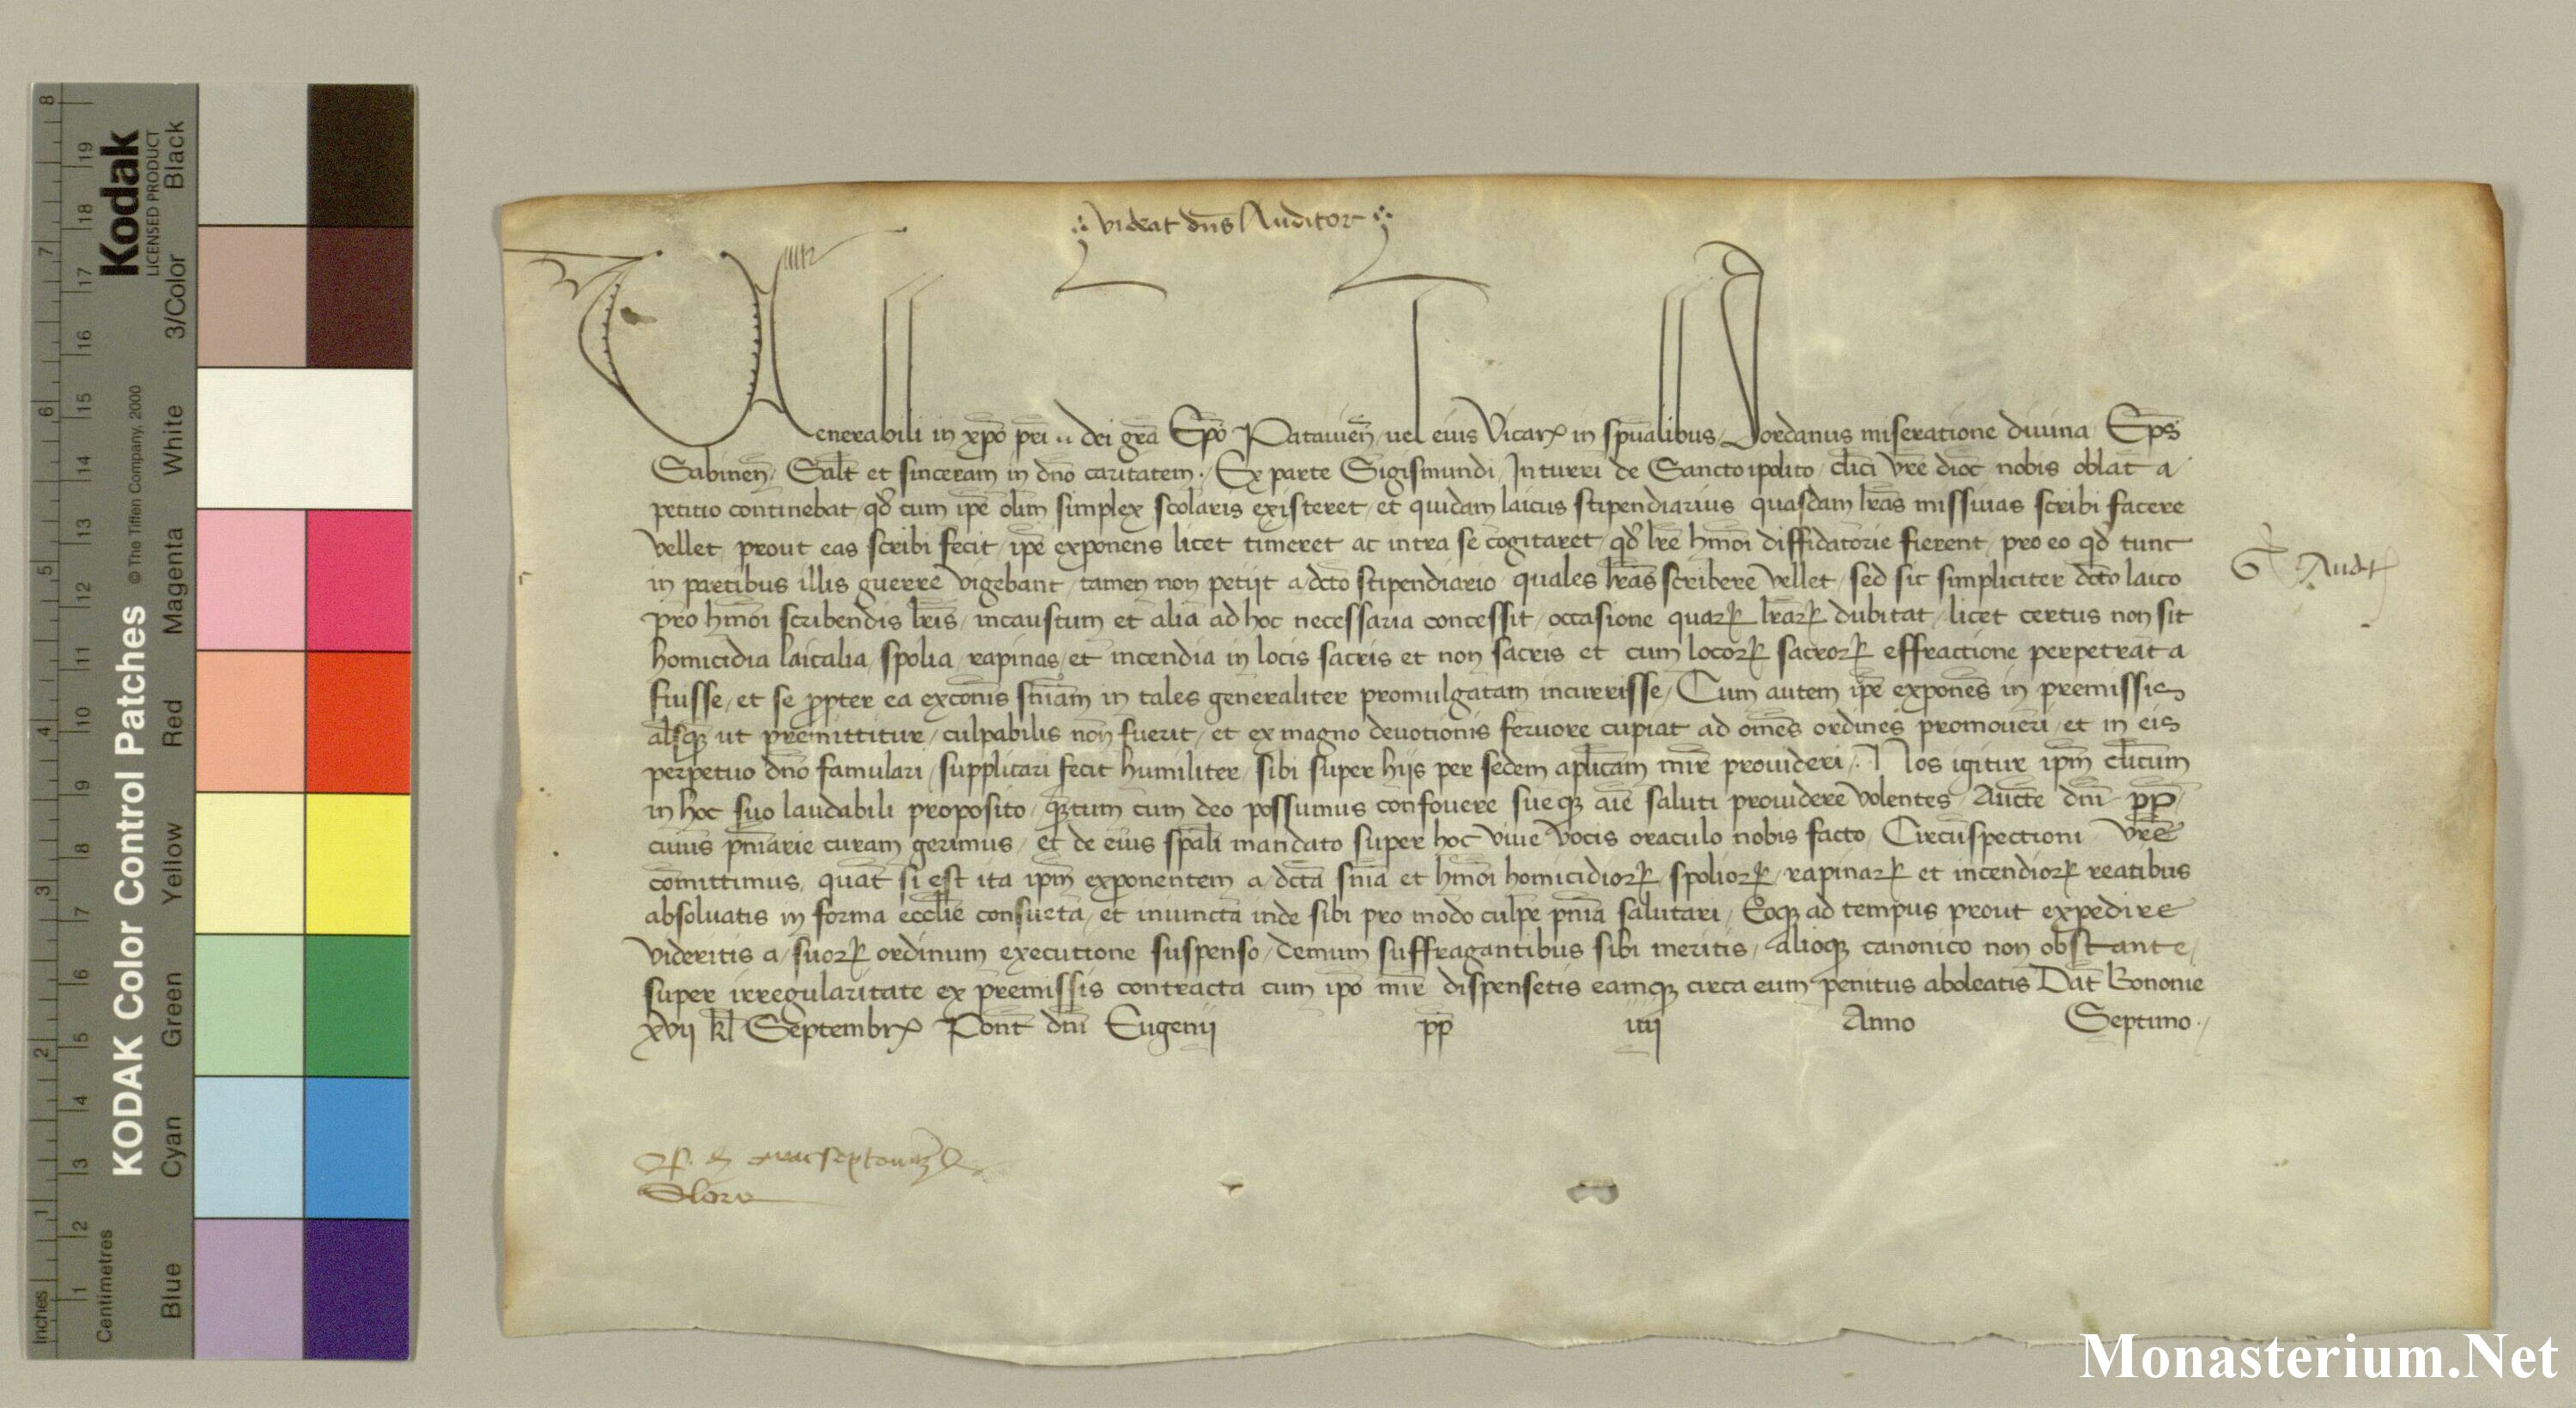 videat dn̄s Auditor
Venerabili in xp̄o pr̄i .. dei gr̄a Ep̄o Patauien̄ uel eius Vicar̄ in sp̄ualibus Jordanus miseratione diuina Ep̄s
Sabinen̄ Salt̄ et sinceram in dn̄o caritatem. Ex parte Sigismundi Jnturri de Sanctoipolito cl̄ici vr̄e dioc̄ nobis oblata
petitio continebat, qd̄ cum ip̄e olim simplex scolaris existeret, et quidam laicus stipendiarius quasdam lr̄as missiuas scribi facere
vellet, prout eas scribi fecit, ip̄e exponens licet timeret ac intra se cogitaret, qd̄ lr̄e hm̄oi diffidatorie fierent, pro eo qd̄ tunc
in partibus illis guerre vigebant, tamen non petijt a dc̄o stipendiario quales lr̄as scribere vellet, sed sic simpliciter dc̄o laico
pro hm̄oi scribendis lr̄is, incaustum et alia ad hoc necessaria concessit, occasione quarꝝ lr̄arꝝ dubitat, licet certus non sit
homicidia laicalia, spolia, rapinas, et incendia in locis sacris et non sacris et cum locorꝝ sacrorꝝ effractione perpetrata
fuisse, et se ꝓpter ea excōis sn̄iam in tales generaliter promulgatam incurrisse, Cum autem ip̄e exponens in premissis
al̄sqꝫ ut premittitur, culpabilis non fuerit, et ex magno deuotionis feruore cupiat ad om̄es ordines promoueri, et in eis
perpetuo dn̄o famulari, supplicari fecit humiliter, sibi super hijs per sedem apl̄icam mīr prouideri. Nos igitur ip̄m cl̄icum
in hoc suo laudabili proposito, qꝫtum cum deo possumus confouere sueqꝫ aīe saluti prouidere volentes, Auct̄e dn̄i pp̄
cuius pn̄iarie curam gerimus, et de eius sp̄ali mandato super hoc viue vocis oraculo nobis facto, Circūspectioni vr̄e
com̄ittimus, quat̄ si est ita ip̄m exponentem a dc̄a sn̄ia et hm̄oi homicidiorꝝ, spoliorꝝ, rapinarꝝ et incendiorꝝ reatibus
absoluatis in forma eccl̄ie consueta, et iniuncta inde sibi pro modo culpe pn̄ia salutari, Eoqꝫ ad tempus prout expedire
videritis a suorꝝ ordinum executione suspenso, demum suffragantibus sibi meritis, alioqꝫ canonico non obstante,
super irregularitate ex premissis contracta cum ip̄o mīr dispensetis eamqꝫ circa eum penitus aboleatis Dat̄ Bononie
xvij kl̄ Septembr̄ Pont̄ dn̄i Eugenij pp̄ iiij Anno Septimo.
G Audit̄
Inches
Centimetres
1 2 3 4 5 6 7 8 9 10 11 12 13 14 15 16 17 18 19
1 2 3 4 5 6 7 8
KODAK Color Control Patches
© The Tiffen Company, 2000
Kodak
LICENSED PRODUCT
Blue
Cyan
Green
Yellow
Red
Magenta
White
3/Color
Black
Monasterium.Net